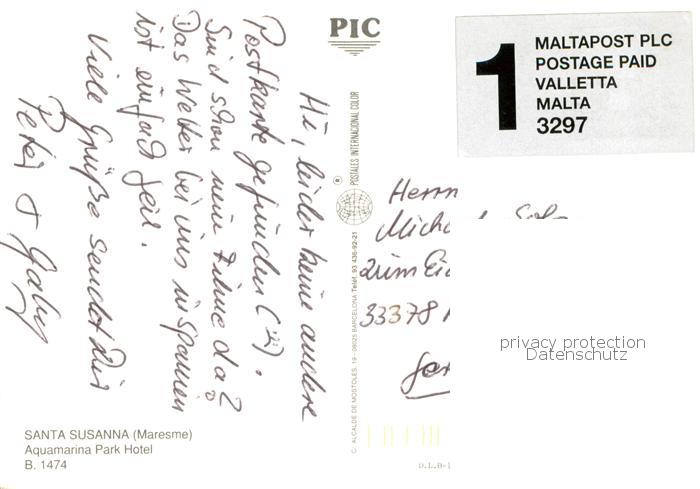 PIC
1
MALTAPOST PLC
POSTAGE PAID
VALLETTA
MALTA
3297
Hi, leider keine andere
Postkarte gefunden (").
Sind schon neue Filme da?
Das Wetter bei uns in Spanien
ist einfach geil.
Viele Grüße sendet Dir
Peter & Gaby
® POSTALES INTERNACIONAL COLOR
C. ALCALDE DE MOSTOLES, 19 - 08025 BARCELONA Teléf. 93 436-92-21
Herrn
33378
privacy protection
Datenschutz
SANTA SUSANNA (Maresme)
Aquamarina Park Hotel
B. 1474
D.L.B-